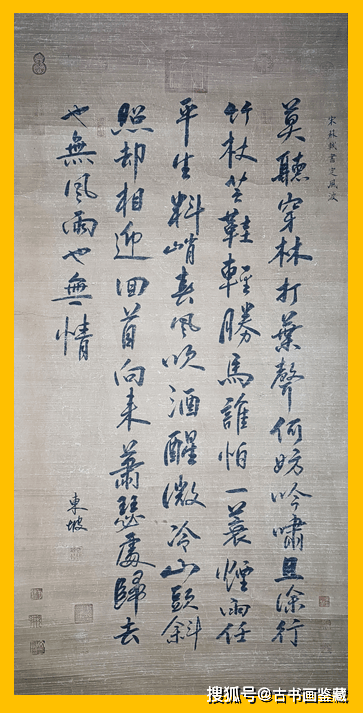 宋蘇軾書定風波
莫聽穿林打葉聲何妨吟嘯且徐行
竹杖芒鞋輕勝馬誰怕一蓑煙雨任
平生料峭春風吹酒醒微冷山頭斜
照却相迎回首向来蕭瑟處歸去
也無風雨也無情
東坡
搜狐号@古书画鉴藏